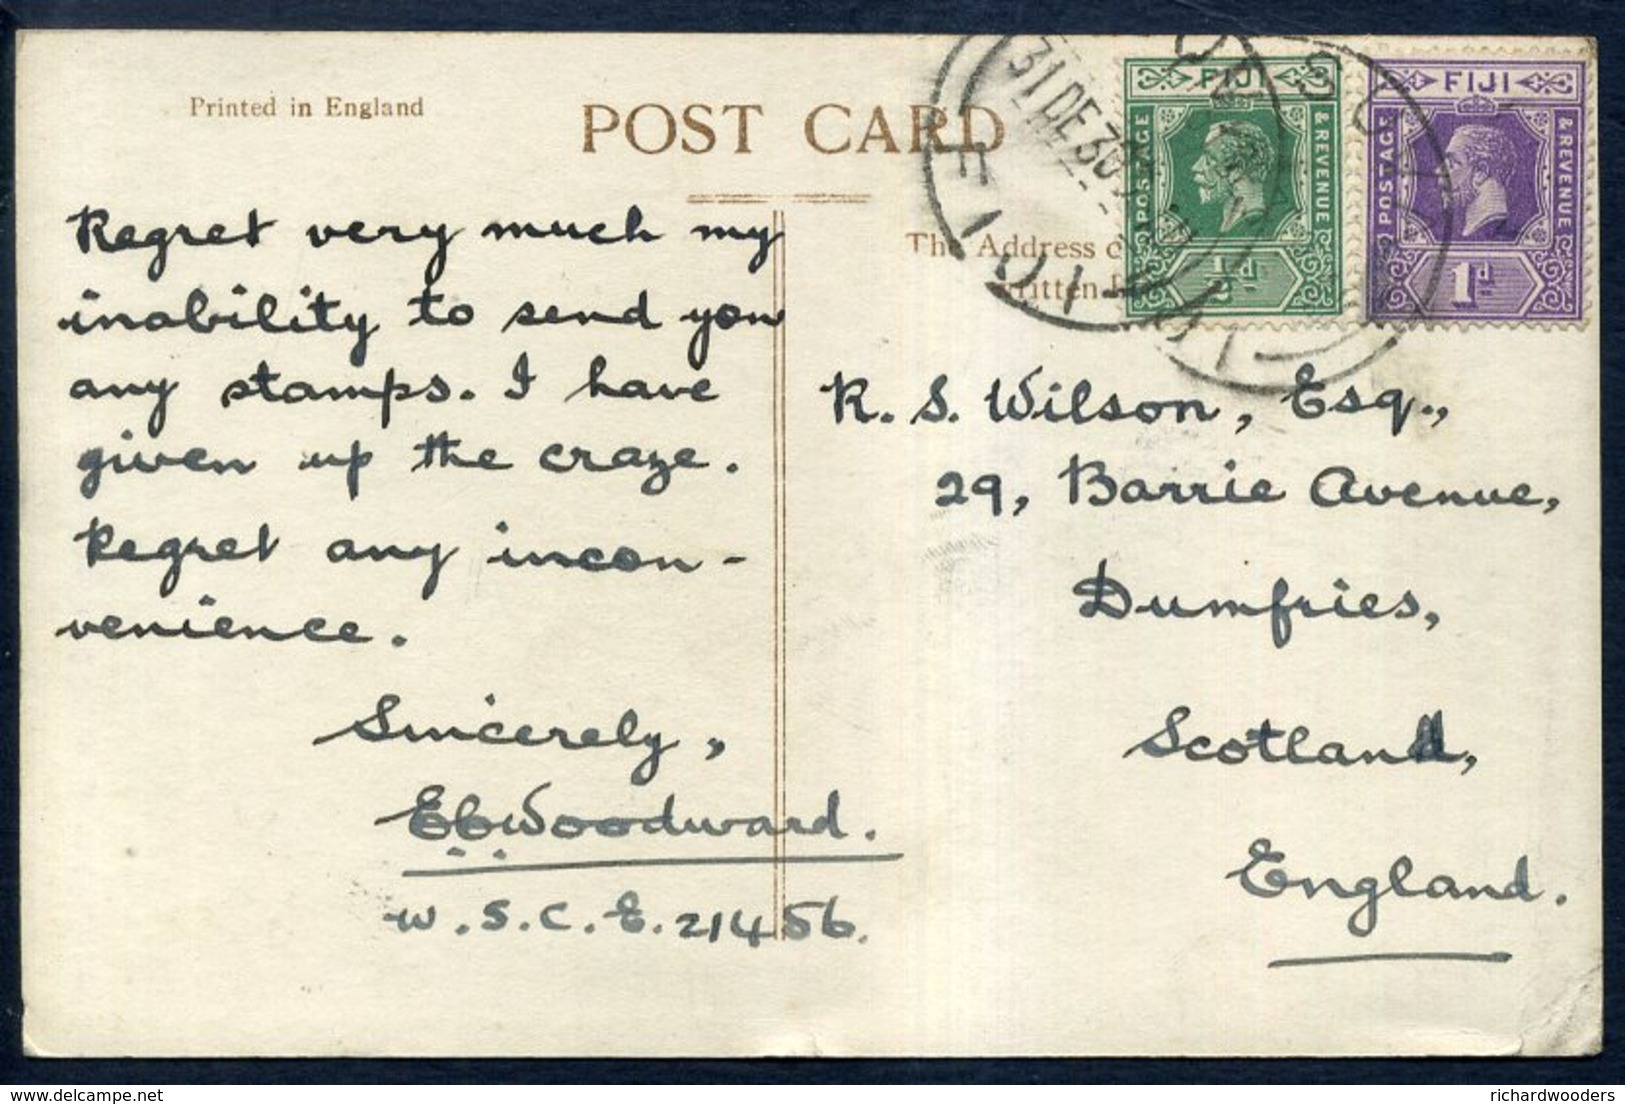 Printed in England
POST CARD
The Address
written
31 DE 30
SUVA
FIJI
FIJI
POSTAGE
& REVENUE
½d
FIJI
POSTAGE
& REVENUE
1d
Regret very much my
inability to send you
any stamps. I have
given up the craze.
Regret any incon-
venience.
Sincerely,
EbWoodward.
W.S.C.E. 21456.
R. S. Wilson, Esq.,
29, Barrie Avenue,
Dumfries,
Scotland,
England.
richardwooders